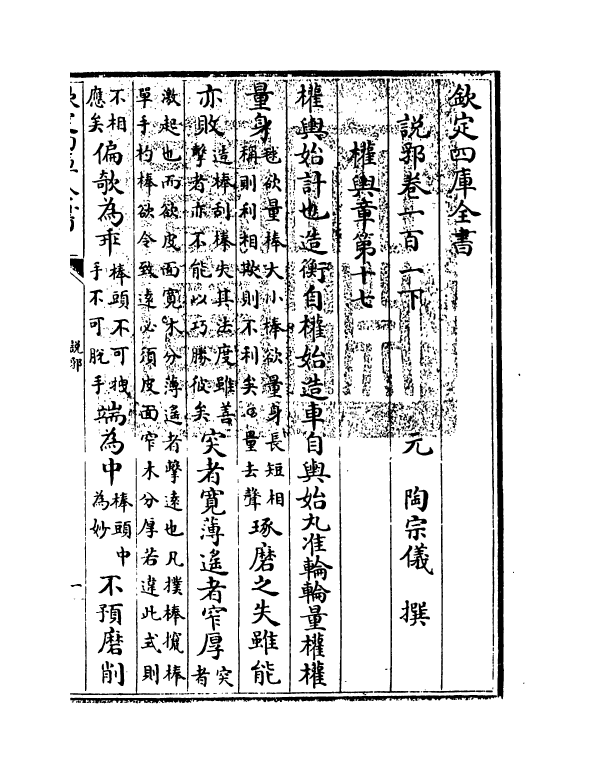 欽定四庫全書
說郛卷一百一下　元　陶宗儀　撰
權輿章第十七
權輿始計也造衡自權始造車自輿始丸准輪輪量權權
量身毬欲量棒大小棒欲量身長短相稱則利相欺則不利矣量去聲琢磨之失雖能
亦敗造棒刮棒失其法度雖善擊者亦不能以巧勝彼矣突者寬薄遙者窄厚突者
激起也而欲皮面寬木分薄遙者擊遠也凡撲棒攛棒單手杓棒欲令致遠必須皮面窄木分厚若違此式則
不相應矣偏欹為乖棒頭不可拽手不可脫手端為中棒頭中為妙不預磨削
欽定四庫全書
說郛
一